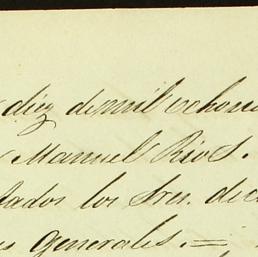 diez de mil ochoci
Manuel Rios.
tados los Sres. de
generales. =